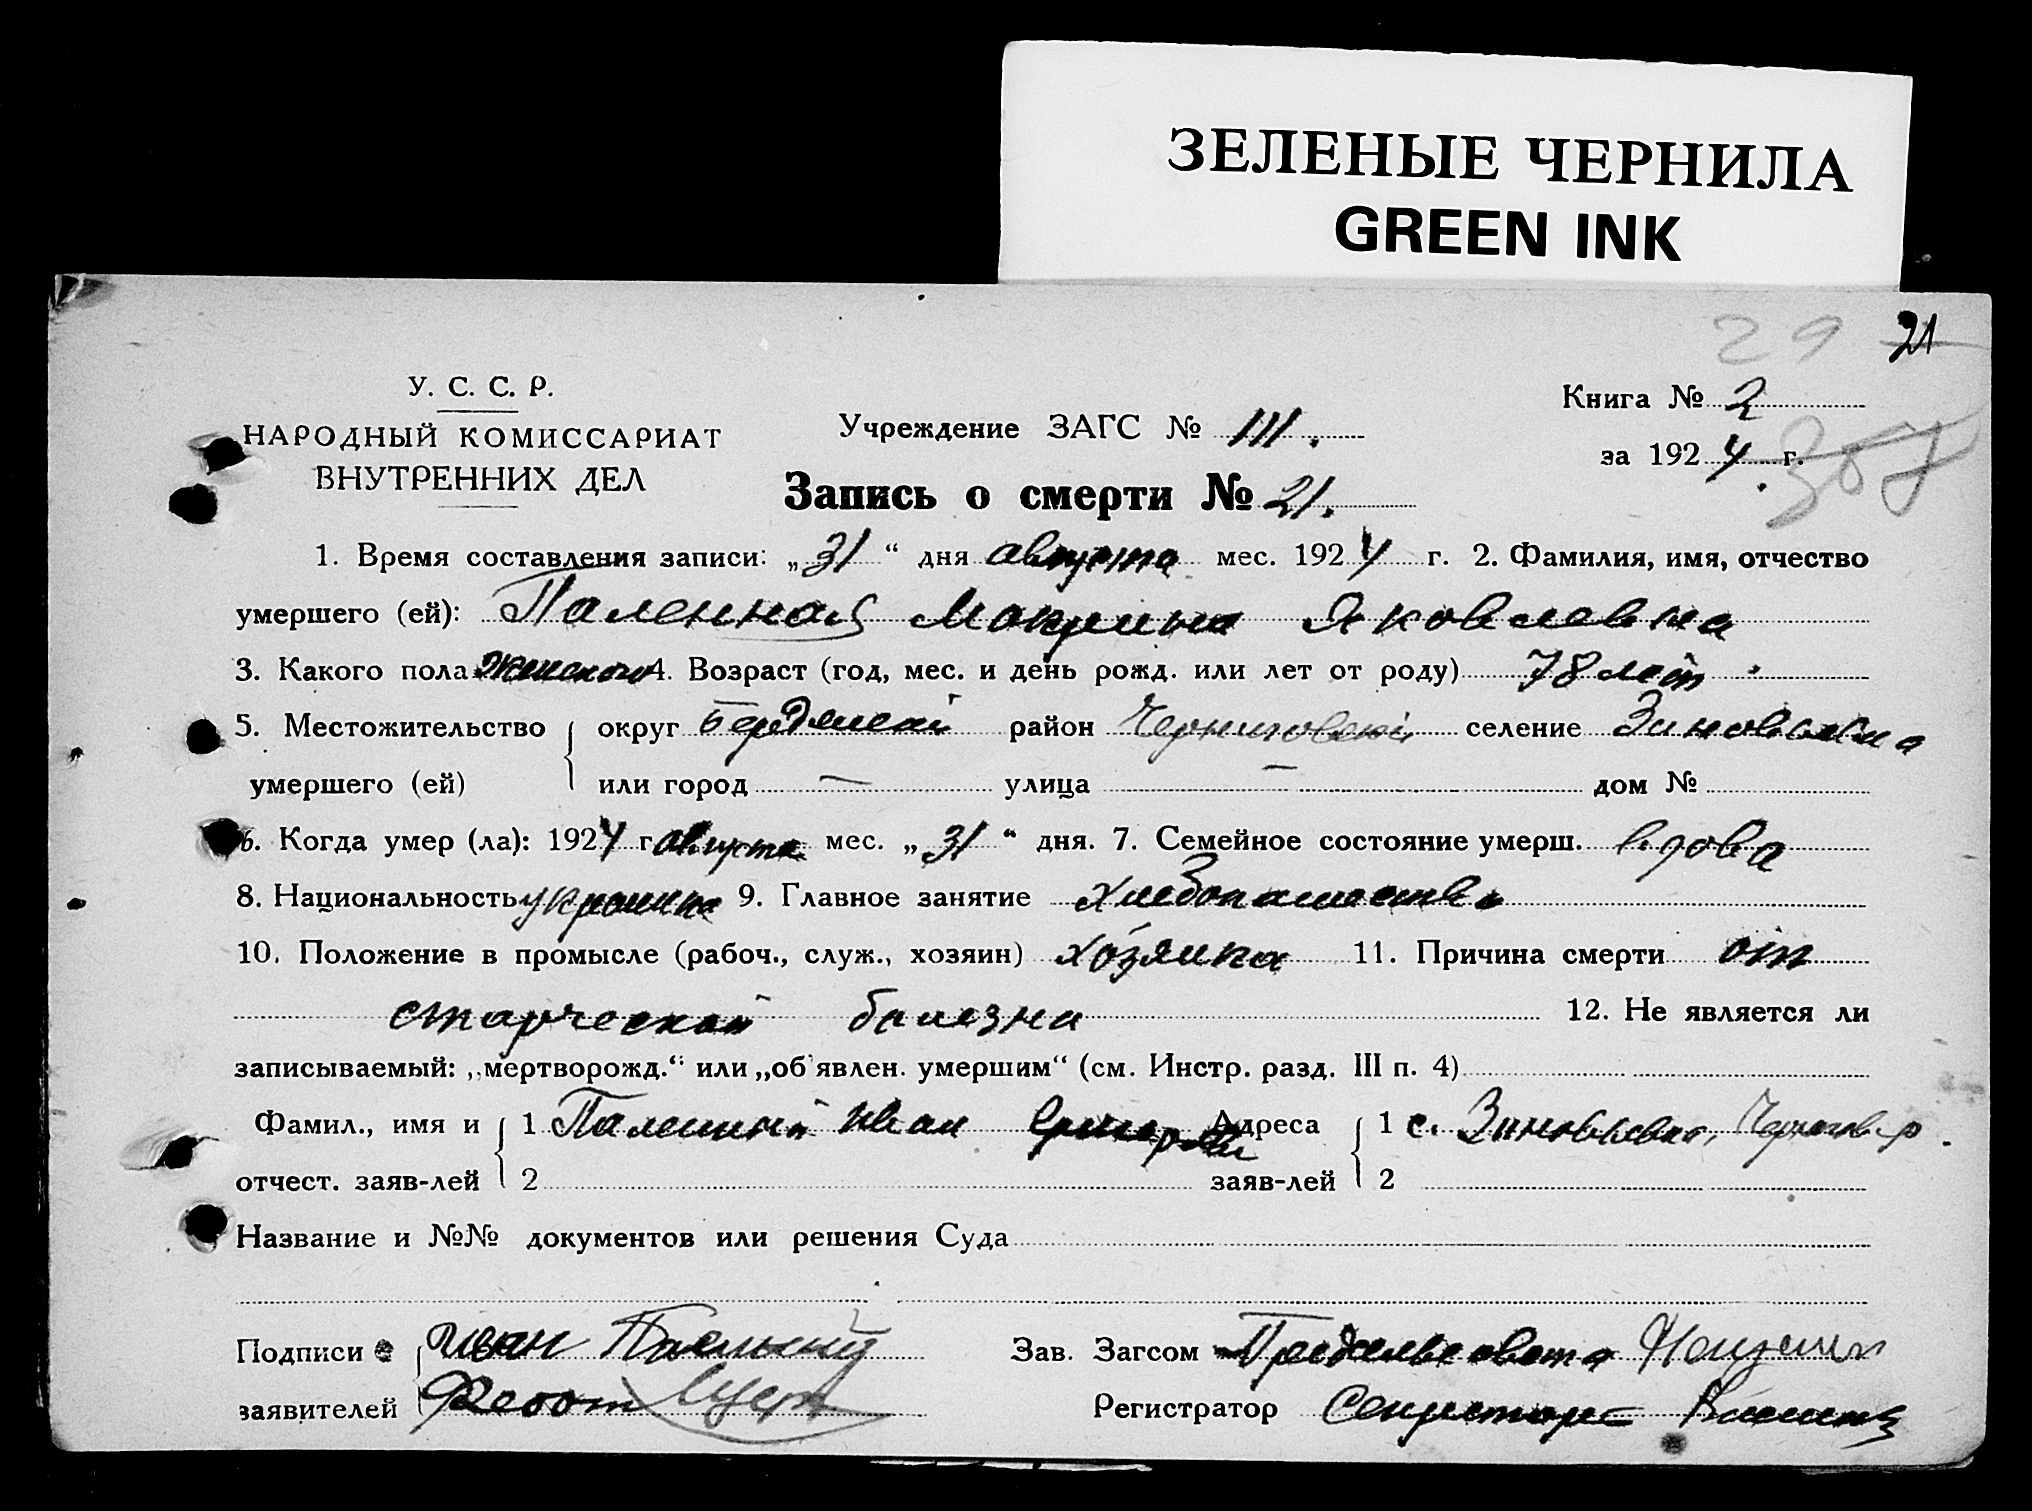 ЗЕЛЕНЫЕ ЧЕРНИЛА
GREEN INK
29 21
У. С. С. Р.
НАРОДНЫЙ КОМИССАРИАТ
ВНУТРЕННИХ ДЕЛ
Учреждение ЗАГС № III.
Книга № 2
за 1924 г.
Запись о смерти № 21.
1. Время составления записи: „31“ дня августа мес. 1924 г. 2. Фамилия, имя, отчество
умершего (ей): Паленная Макрина Яковлевна
3. Какого пола женского 4. Возраст (год, мес. и день рожд. или лет от роду) 78 лет.
5. Местожительство округ Бердянский район Черниговский селение Зиновьевка
умершего (ей) или город — улица — дом №
6. Когда умер (ла): 1924 г августа мес. „31“ дня. 7. Семейное состояние умерш. вдова
8. Национальность 9. Главное занятие хлебопашество
10. Положение в промысле (рабоч., служ., хозяин) хозяйка 11. Причина смерти от
старческой болезни 12. Не является ли
записываемый: „мертворожд.“ или „об'явлен. умершим“ (см. Инстр. разд. III п. 4)
Фамил., имя и 1 Паленный Иван Адреса 1 с. Зиновьевка, Чернигов. р.
отчест. заяв-лей 2 заяв-лей 2
Название и №№ документов или решения Суда
Подписи Иван Зав. Загсом Предсельсовета
заявителей Федот Регистратор Секретарь